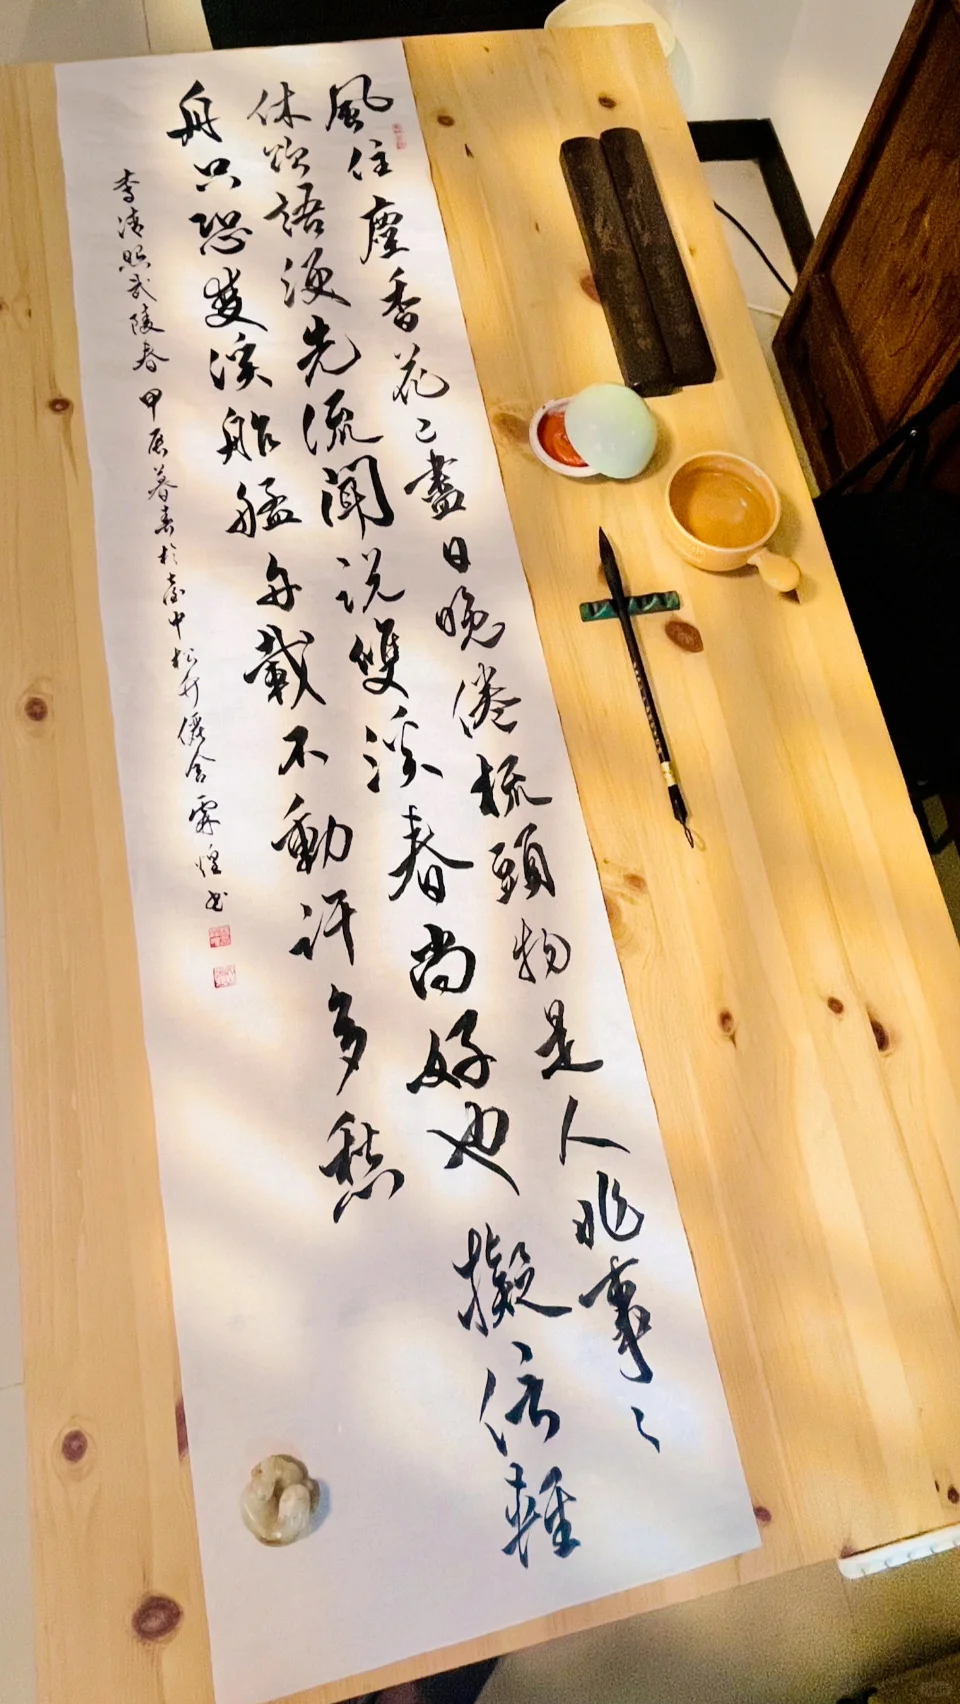 風住塵香花已盡日晚倦梳頭物是人非事〻
休欲語淚先流聞説雙溪春尚好也擬泛輕
舟只恐雙溪舴艋舟載不動許多愁
李清照武陵春 甲辰暮春於臺中松竹僑舍霖煌書